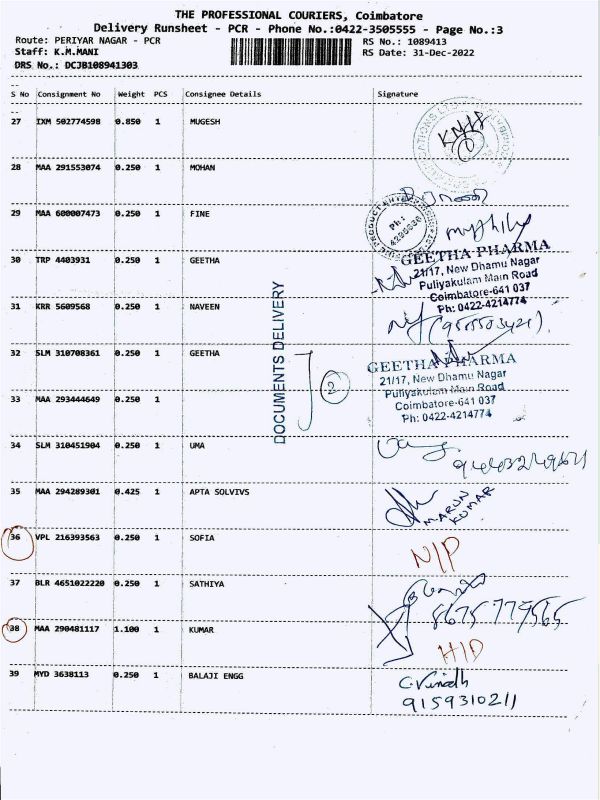 THE PROFESSIONAL COURIERS, Coimbatore
Delivery Runsheet - PCR - Phone No.:0422-3505555 - Page No.:3
Route: PERIYAR NAGAR - PCR RS No.: 1089413
Staff: K.M.MANI RS Date: 31-Dec-2022
DRS No.: DCJB108941303
S No Consignment No Weight PCS Consignee Details Signature
27 IXM 502774598 0.850 1 MUGESH
28 MAA 291553074 0.250 1 MOHAN
29 MAA 600007473 0.250 1 FINE
Ph.:
30 TRP 4403931 0.250 1 GEETHA
GEETHA PHARMA
21/17, New Dhamu Nagar
Puliyakulam Main Road
Coimbatore-641 037
Ph: 0422-4214774
31 KRR 5609568 0.250 1 NAVEEN
DOCUMENTS DELIVERY
2
32 SLM 310708361 0.250 1 GEETHA
GEETHA PHARMA
21/17, New Dhamu Nagar
Puliyakulam Main Road
Coimbatore-641 037
Ph: 0422-4214774
33 MAA 293444649 0.250 1
34 SLM 310451904 0.250 1 UMA
35 MAA 294289301 0.425 1 APTA SOLVIVS
MARUN
KUMAR
36 VPL 216393563 0.250 1 SOFIA N/P
37 BLR 4651022220 0.250 1 SATHIYA
8675779565
38 MAA 290481117 1.100 1 KUMAR H/D
39 MYD 3638113 0.250 1 BALAJI ENGG C.Vinoth
9159310211